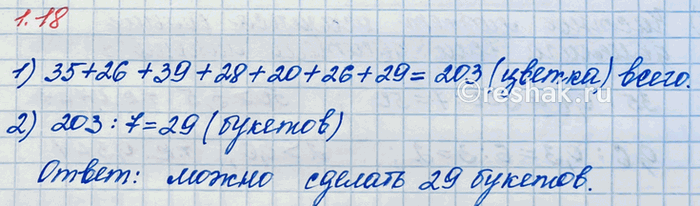 1.18
1) 35+26+39+28+20+26+29=203 (цветка) всего.
reshak.ru
2) 203:7=29 (букетов)
Ответ: можно сделать 29 букетов.